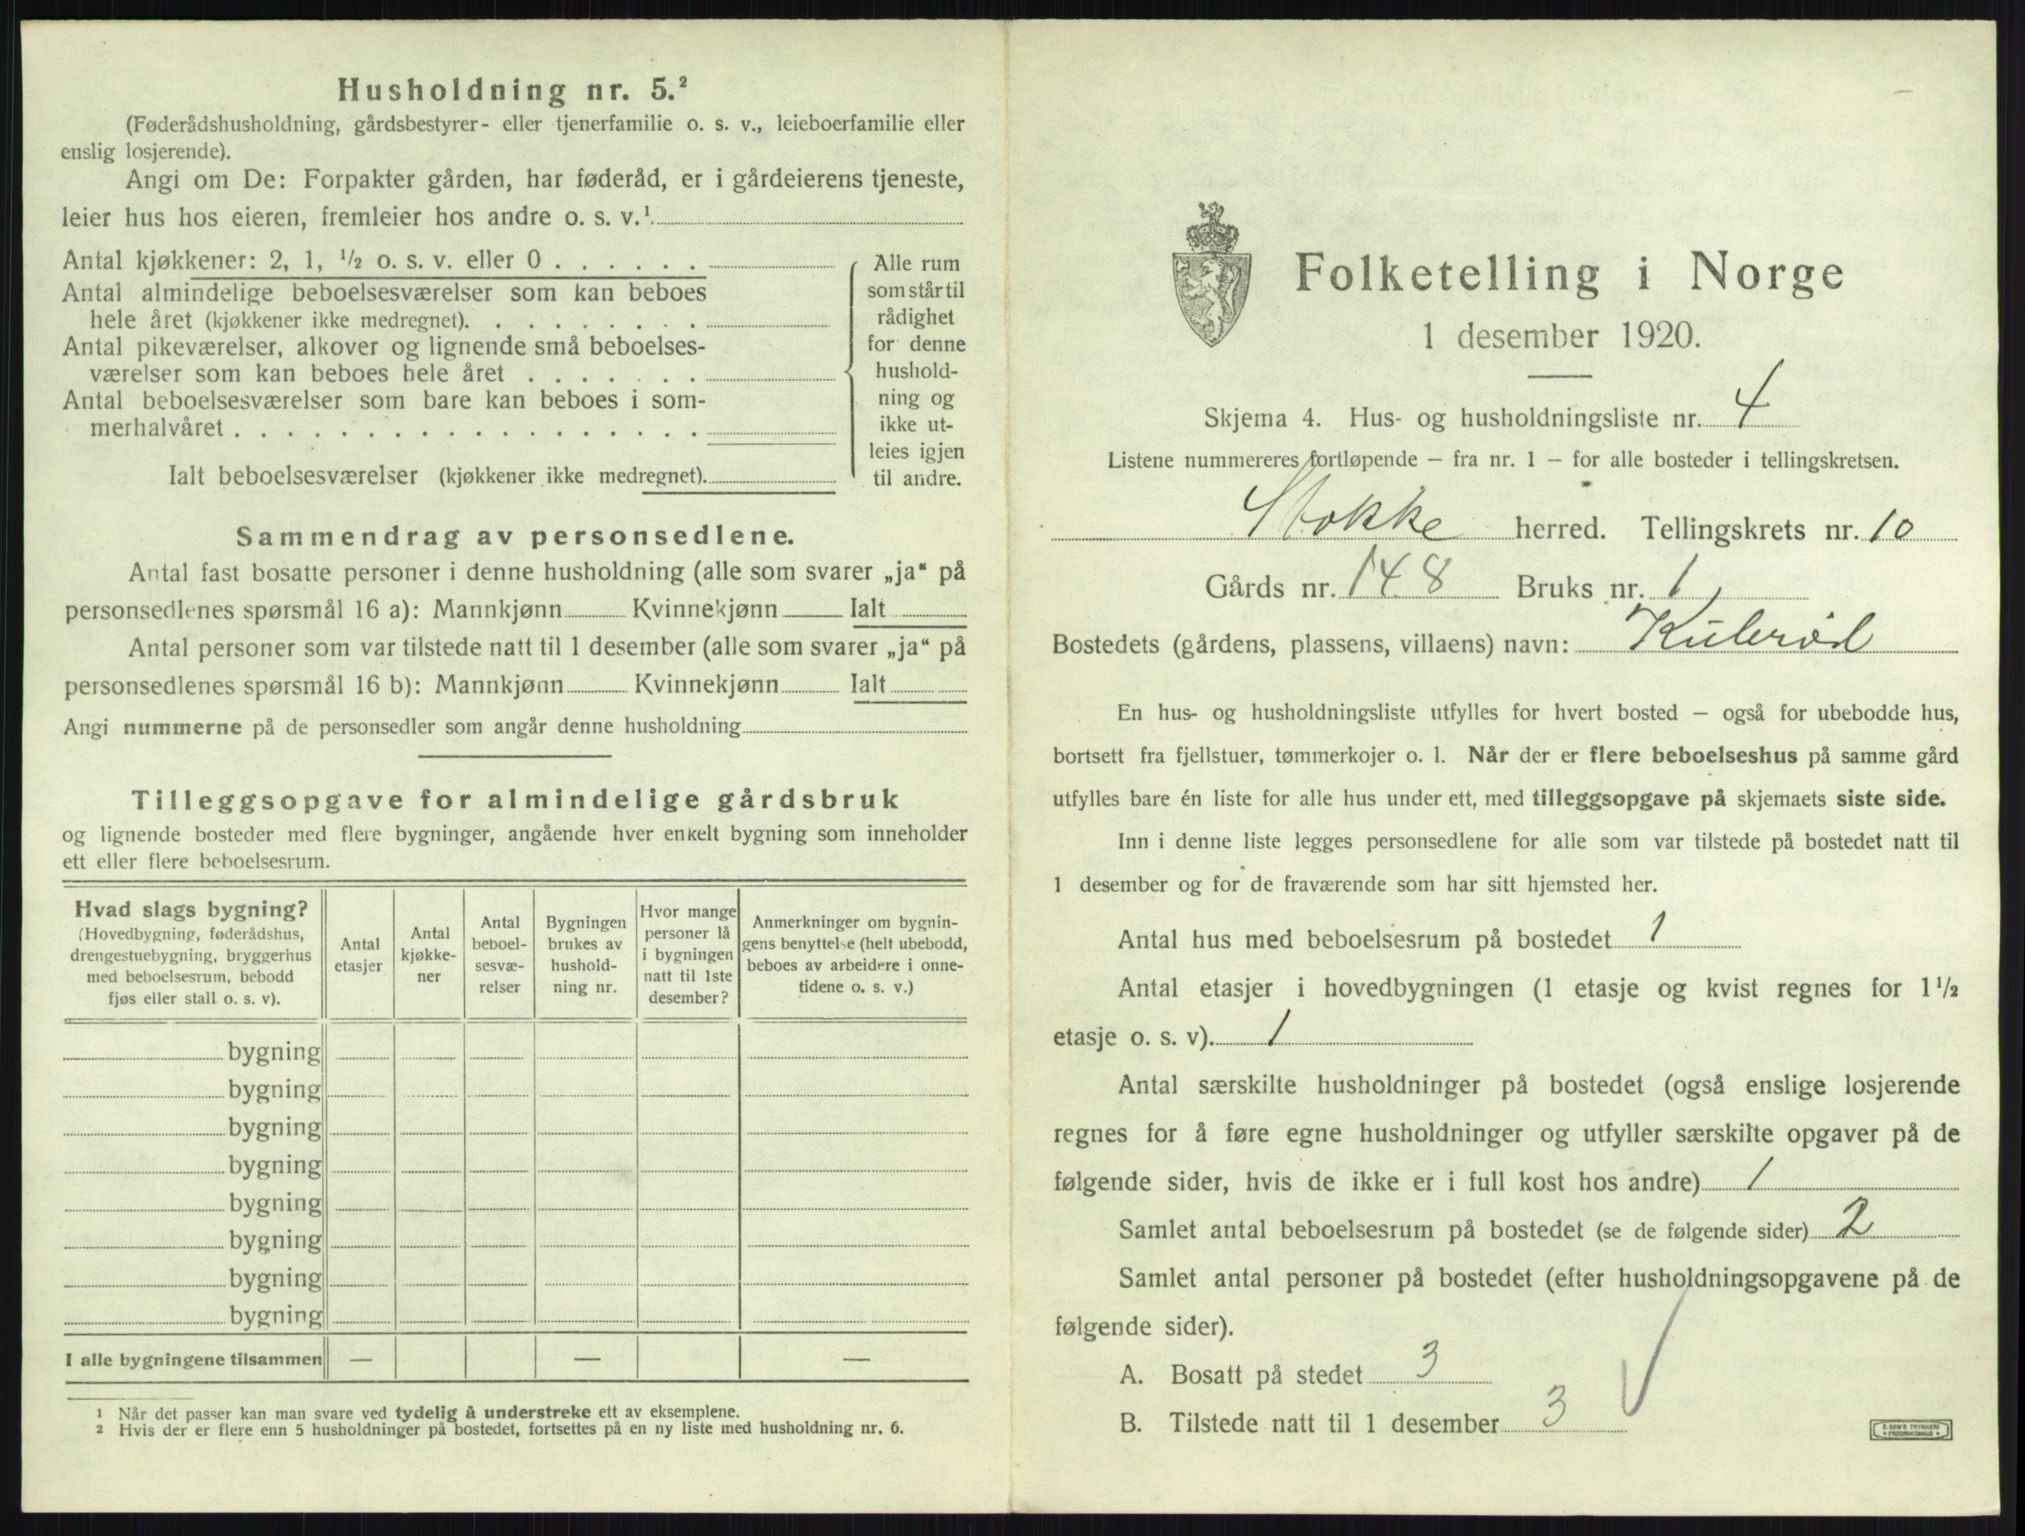 Husholdning nr. 5.²
(Føderådshusholdning, gårdsbestyrer- eller tjenerfamilie o. s. v., leieboerfamilie eller
enslig losjerende).
Angi om De: Forpakter gården, har føderåd, er i gårdeierens tjeneste,
leier hus hos eieren, fremleier hos andre o. s. v.¹
Antal kjøkkener: 2, 1, ½ o. s. v. eller 0 . . . . . .
Antal almindelige beboelsesværelser som kan beboes
hele året (kjøkkener ikke medregnet). . . . . . . . .
Antal pikeværelser, alkover og lignende små beboelses-
værelser som kan beboes hele året . . . . . . .
Antal beboelsesværelser som bare kan beboes i som-
merhalvåret . . . . . . . . . . . . . . . . . .
Ialt beboelsesværelser (kjøkkener ikke medregnet).
Alle rum
som står til
rådighet
for denne
hushold-
ning og
ikke ut-
leies igjen
til andre.
Sammendrag av personsedlene.
Antal fast bosatte personer i denne husholdning (alle som svarer „ja“ på
personsedlenes spørsmål 16 a): Mannkjønn Kvinnekjønn Ialt
Antal personer som var tilstede natt til 1 desember (alle som svarer „ja“ på
personsedlenes spørsmål 16 b): Mannkjønn Kvinnekjønn Ialt
Angi nummerne på de personsedler som angår denne husholdning
Tilleggsopgave for almindelige gårdsbruk
og lignende bosteder med flere bygninger, angående hver enkelt bygning som inneholder
ett eller flere beboelsesrum.
Hvad slags bygning?
(Hovedbygning, føderådshus,
drengestuebygning, bryggerhus
med beboelsesrum, bebodd
fjøs eller stall o. s. v).
Antal
etasjer
Antal
kjøkke-
ner
Antal
beboel-
sesvæ-
relser
Bygningen
brukes av
hushold-
ning nr.
Hvor mange
personer lå
i bygningen
natt til 1ste
desember?
Anmerkninger om bygnin-
gens benyttelse (helt ubebodd,
beboes av arbeidere i onne-
tidene o. s. v.)
bygning
bygning
bygning
bygning
bygning
bygning
bygning
bygning
I alle bygningene tilsammen — — —
¹ Når det passer kan man svare ved tydelig å understreke ett av eksemplene.
² Hvis der er flere enn 5 husholdninger på bostedet, fortsettes på en ny liste med husholdning nr. 6.
Folketelling i Norge
1 desember 1920.
Skjema 4. Hus- og husholdningsliste nr. 4
Listene nummereres fortløpende – fra nr. 1 – for alle bosteder i tellingskretsen.
Stokke herred. Tellingskrets nr. 10
Gårds nr. 148 Bruks nr. 1
Bostedets (gårdens, plassens, villaens) navn: Kulerød
En hus- og husholdningsliste utfylles for hvert bosted – også for ubebodde hus,
bortsett fra fjellstuer, tømmerkojer o. l. Når der er flere beboelseshus på samme gård
utfylles bare én liste for alle hus under ett, med tilleggsopgave på skjemaets siste side.
Inn i denne liste legges personsedlene for alle som var tilstede på bostedet natt til
1 desember og for de fraværende som har sitt hjemsted her.
Antal hus med beboelsesrum på bostedet 1
Antal etasjer i hovedbygningen (1 etasje og kvist regnes for 1½
etasje o. s. v). 1
Antal særskilte husholdninger på bostedet (også enslige losjerende
regnes for å føre egne husholdninger og utfyller særskilte opgaver på de
følgende sider, hvis de ikke er i full kost hos andre) 1
Samlet antal beboelsesrum på bostedet (se de følgende sider) 2
Samlet antal personer på bostedet (efter husholdningsopgavene på de
følgende sider).
A. Bosatt på stedet 3
B. Tilstede natt til 1 desember 3
E. SEM'S TRYKKERI
FREDRIKSHALD